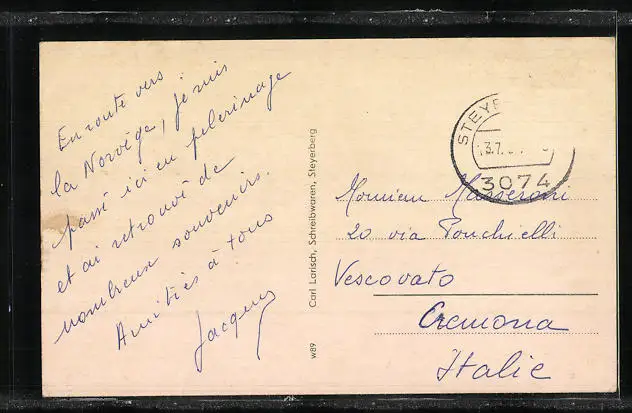 En route vers
la Norvège, je suis
passé ici en pélerinage
et ai retrouvé de
nombreux souvenirs.
Amitiés à tous
Jacques
Carl Larisch, Schreibwaren, Steyerberg
w89
STEYE
3074
Monsieur Masseroni
20 via Ponchielli
Vescovato
Cremona
Italie